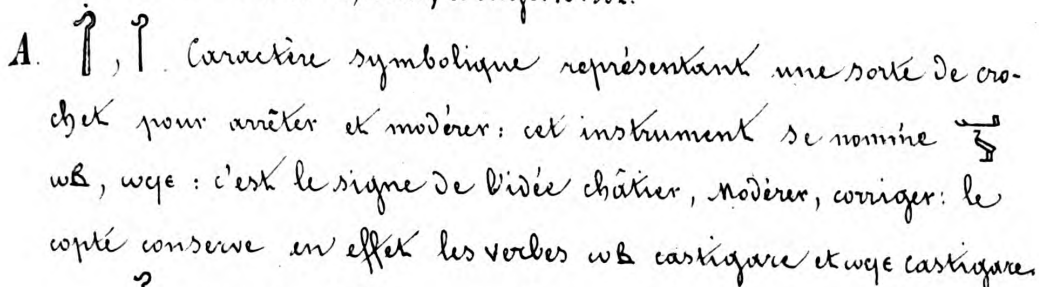 A. 𓋾, 𓋾. Caractère symbolique représentant une sorte de cro-
chet pour arrêter et modérer: cet instrument se nomme
ⲱⲃ, ⲱϥⲉ: c'est le signe de l'idée châtier, modérer, corriger: le
copte conserve en effet les verbes ⲱⲃ castigare et ⲱϥⲉ castigare.